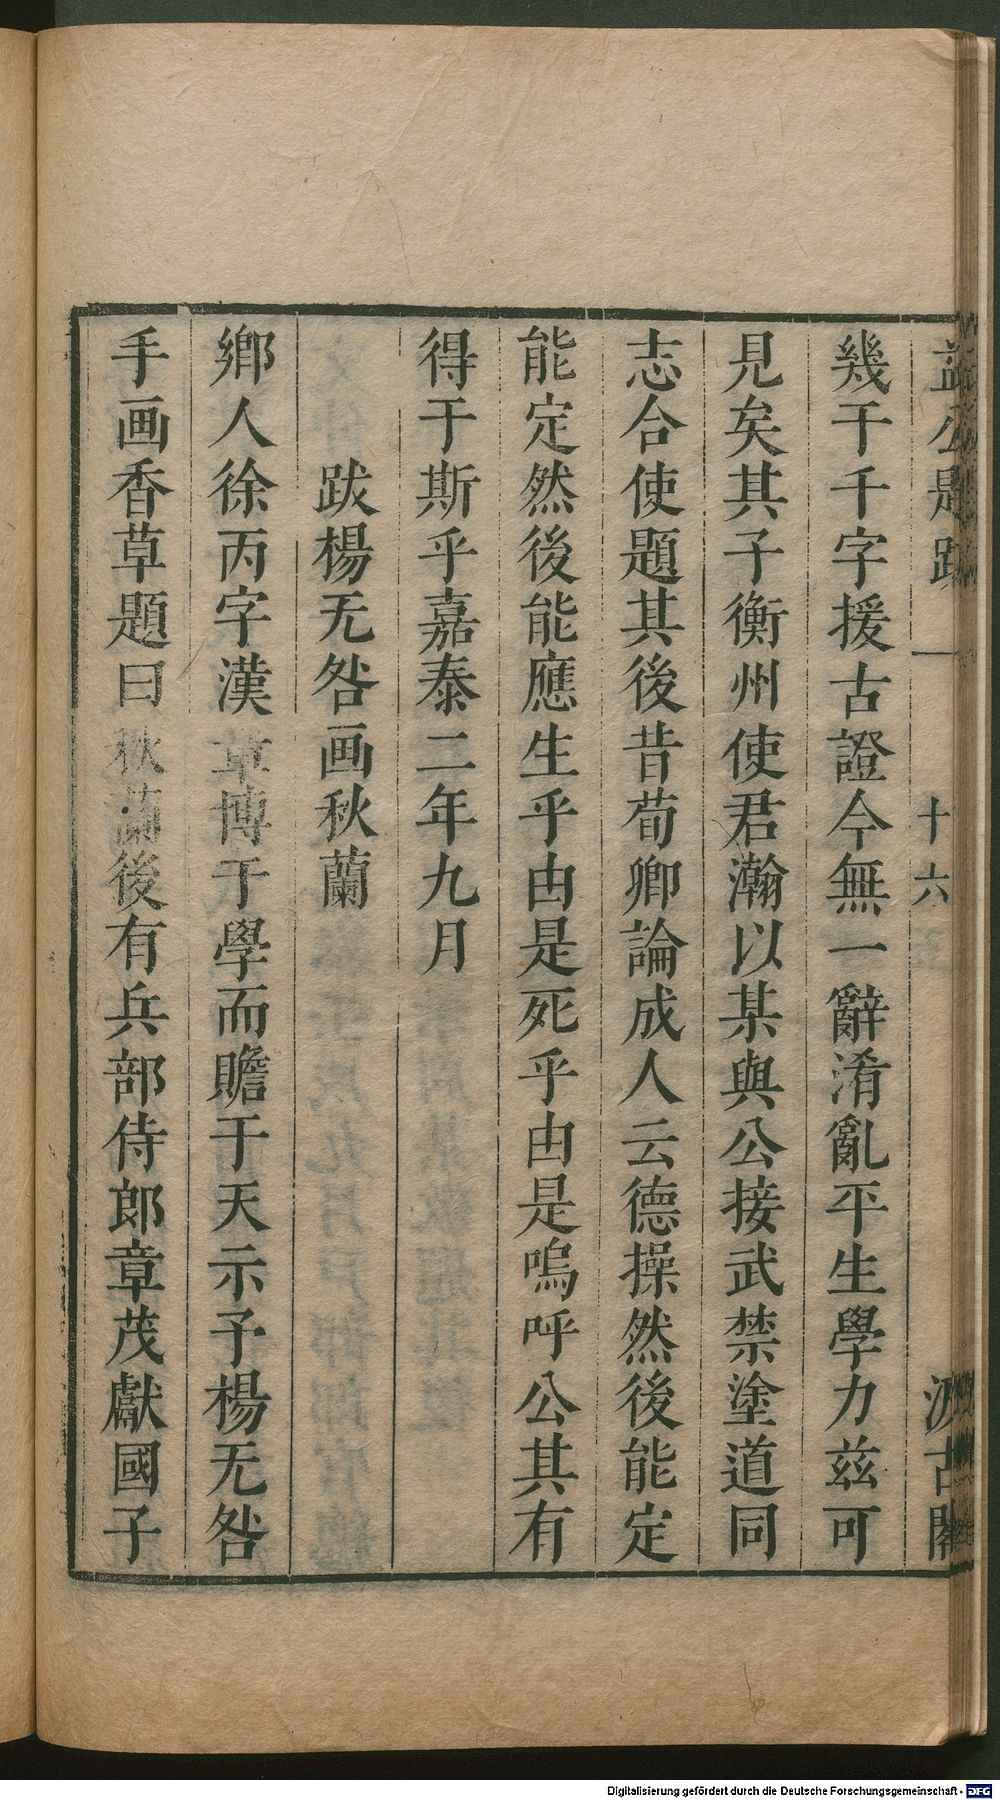 益公題跋 一 十六 汲古閣
幾千千字援古證今無一辭淆亂平生學力茲可
見矣其子衡州使君瀚以某與公接武禁塗道同
志合使題其後昔荀卿論成人云德操然後能定
能定然後能應生乎由是死乎由是嗚呼公其有
得于斯乎嘉泰二年九月
跋楊无咎画秋蘭
鄉人徐丙字漢章博于學而贍于天示予楊无咎
手画香草題曰秋蘭後有兵部侍郎章茂獻國子
Digitalisierung gefördert durch die Deutsche Forschungsgemeinschaft - DFG